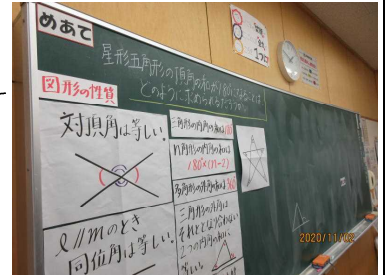 めあて
星形五角形の頂角の和が180°になることは
どのように求められるだろうか。
図形の性質
対頂角は等しい。
l//mのとき
同位角は等しい。
三角形の内角の和は180°
n角形の内角の和は
180°×(n-2)
多角形の外角の和は360°
三角形の外角は
それととなり合わない
2つの内角の和に
等しい。
2020/11/02